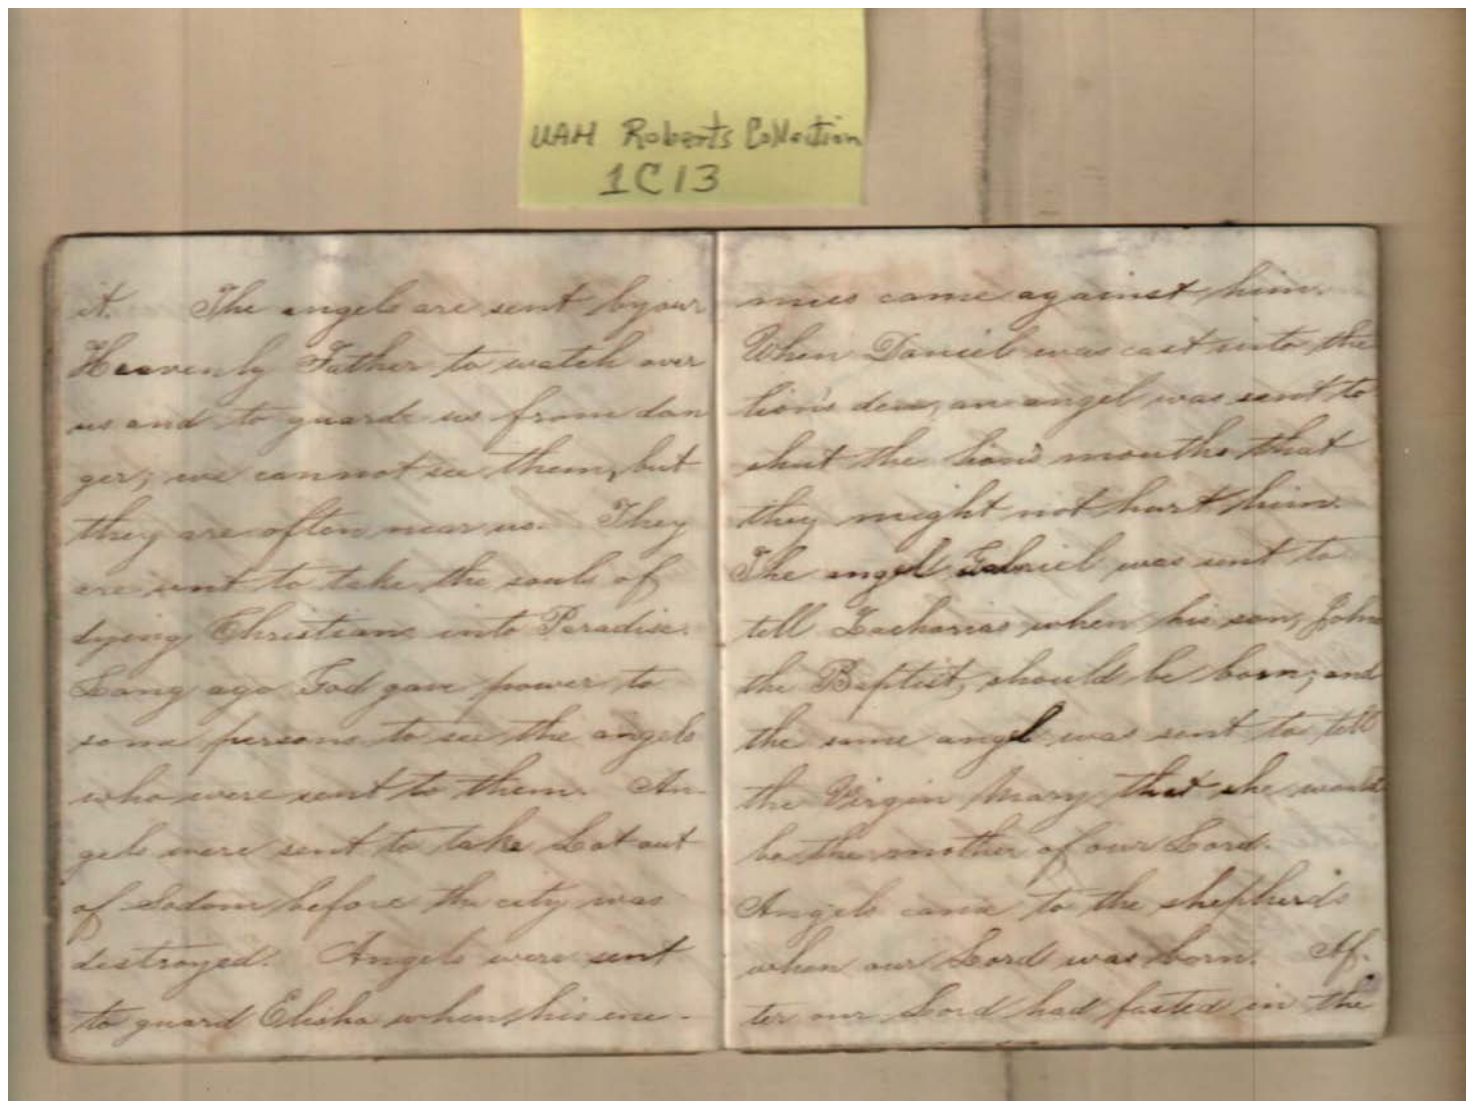 UAH Roberts Collection
1C13
it. The angels are sent by our
Heavenly Father to watch over
us and to guard us from dan
ger; we cannot see them, but
they are often near us. They
are sent to take the souls of
dying Christians into Paradise.
Long ago God gave power to
some persons to see the angels
who were sent to them. An-
gels were sent to take Lot out
of Sodom before the city was
destroyed. Angels were sent
to guard Elisha when his ene-
mies came against him.
When Daniel was cast into the
lion's den, an angel was sent to
shut the lion's mouths that
they might not hurt him.
The angel Gabriel was sent to
tell Zacharias when his son, John
the Baptist, should be born; and
the same angel was sent to tell
the Virgin Mary that she would
be the mother of our Lord.
Angels came to the shepherds
when our Lord was born. Af-
ter our Lord had fasted in the